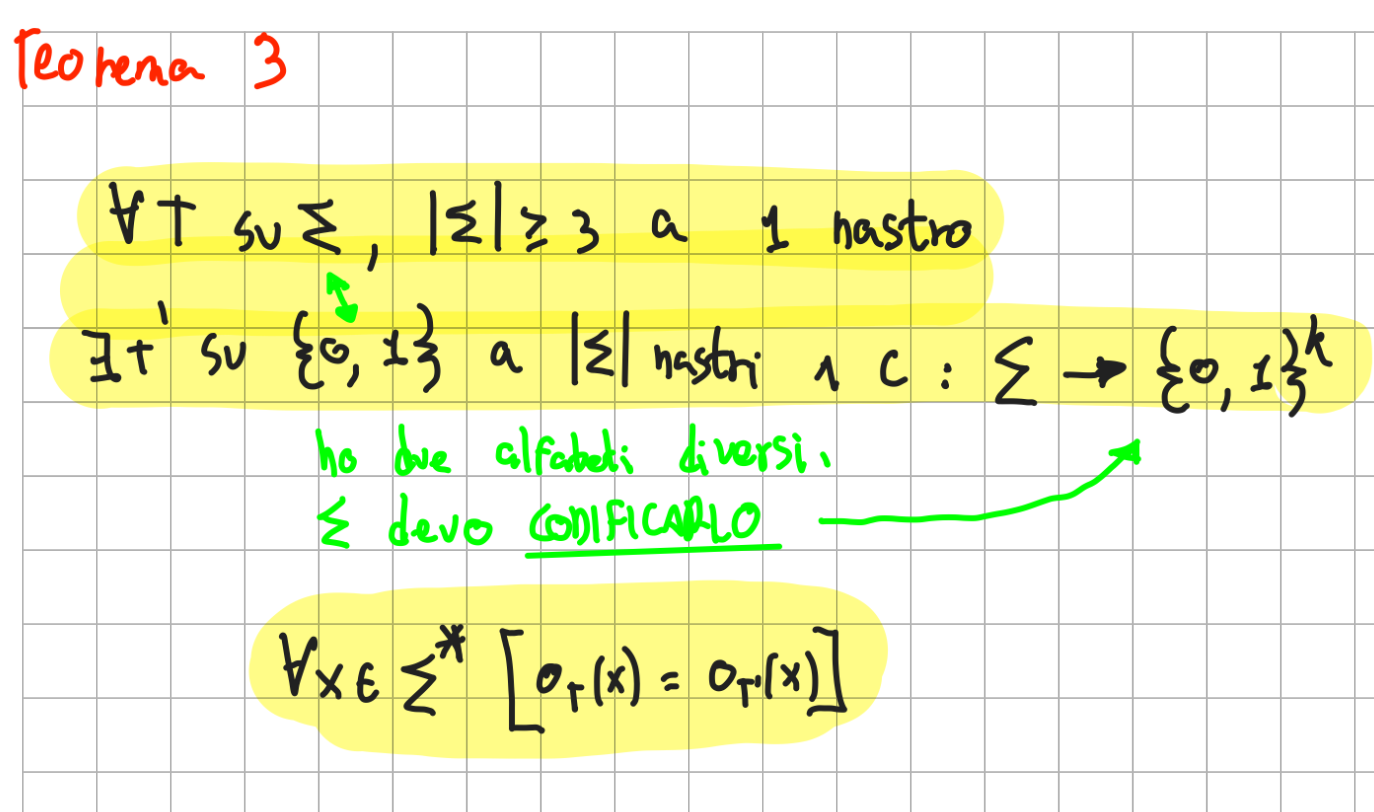 Teorema 3
∀T su Σ, |Σ| ≥ 3 a 1 nastro
∃T' su {0, 1} a |Σ| nastri ∧ C : Σ → {0, 1}^k
ho due alfabeti diversi.
Σ devo CODIFICARLO
∀x ∈ Σ* [o_T(x) = o_T'(x)]